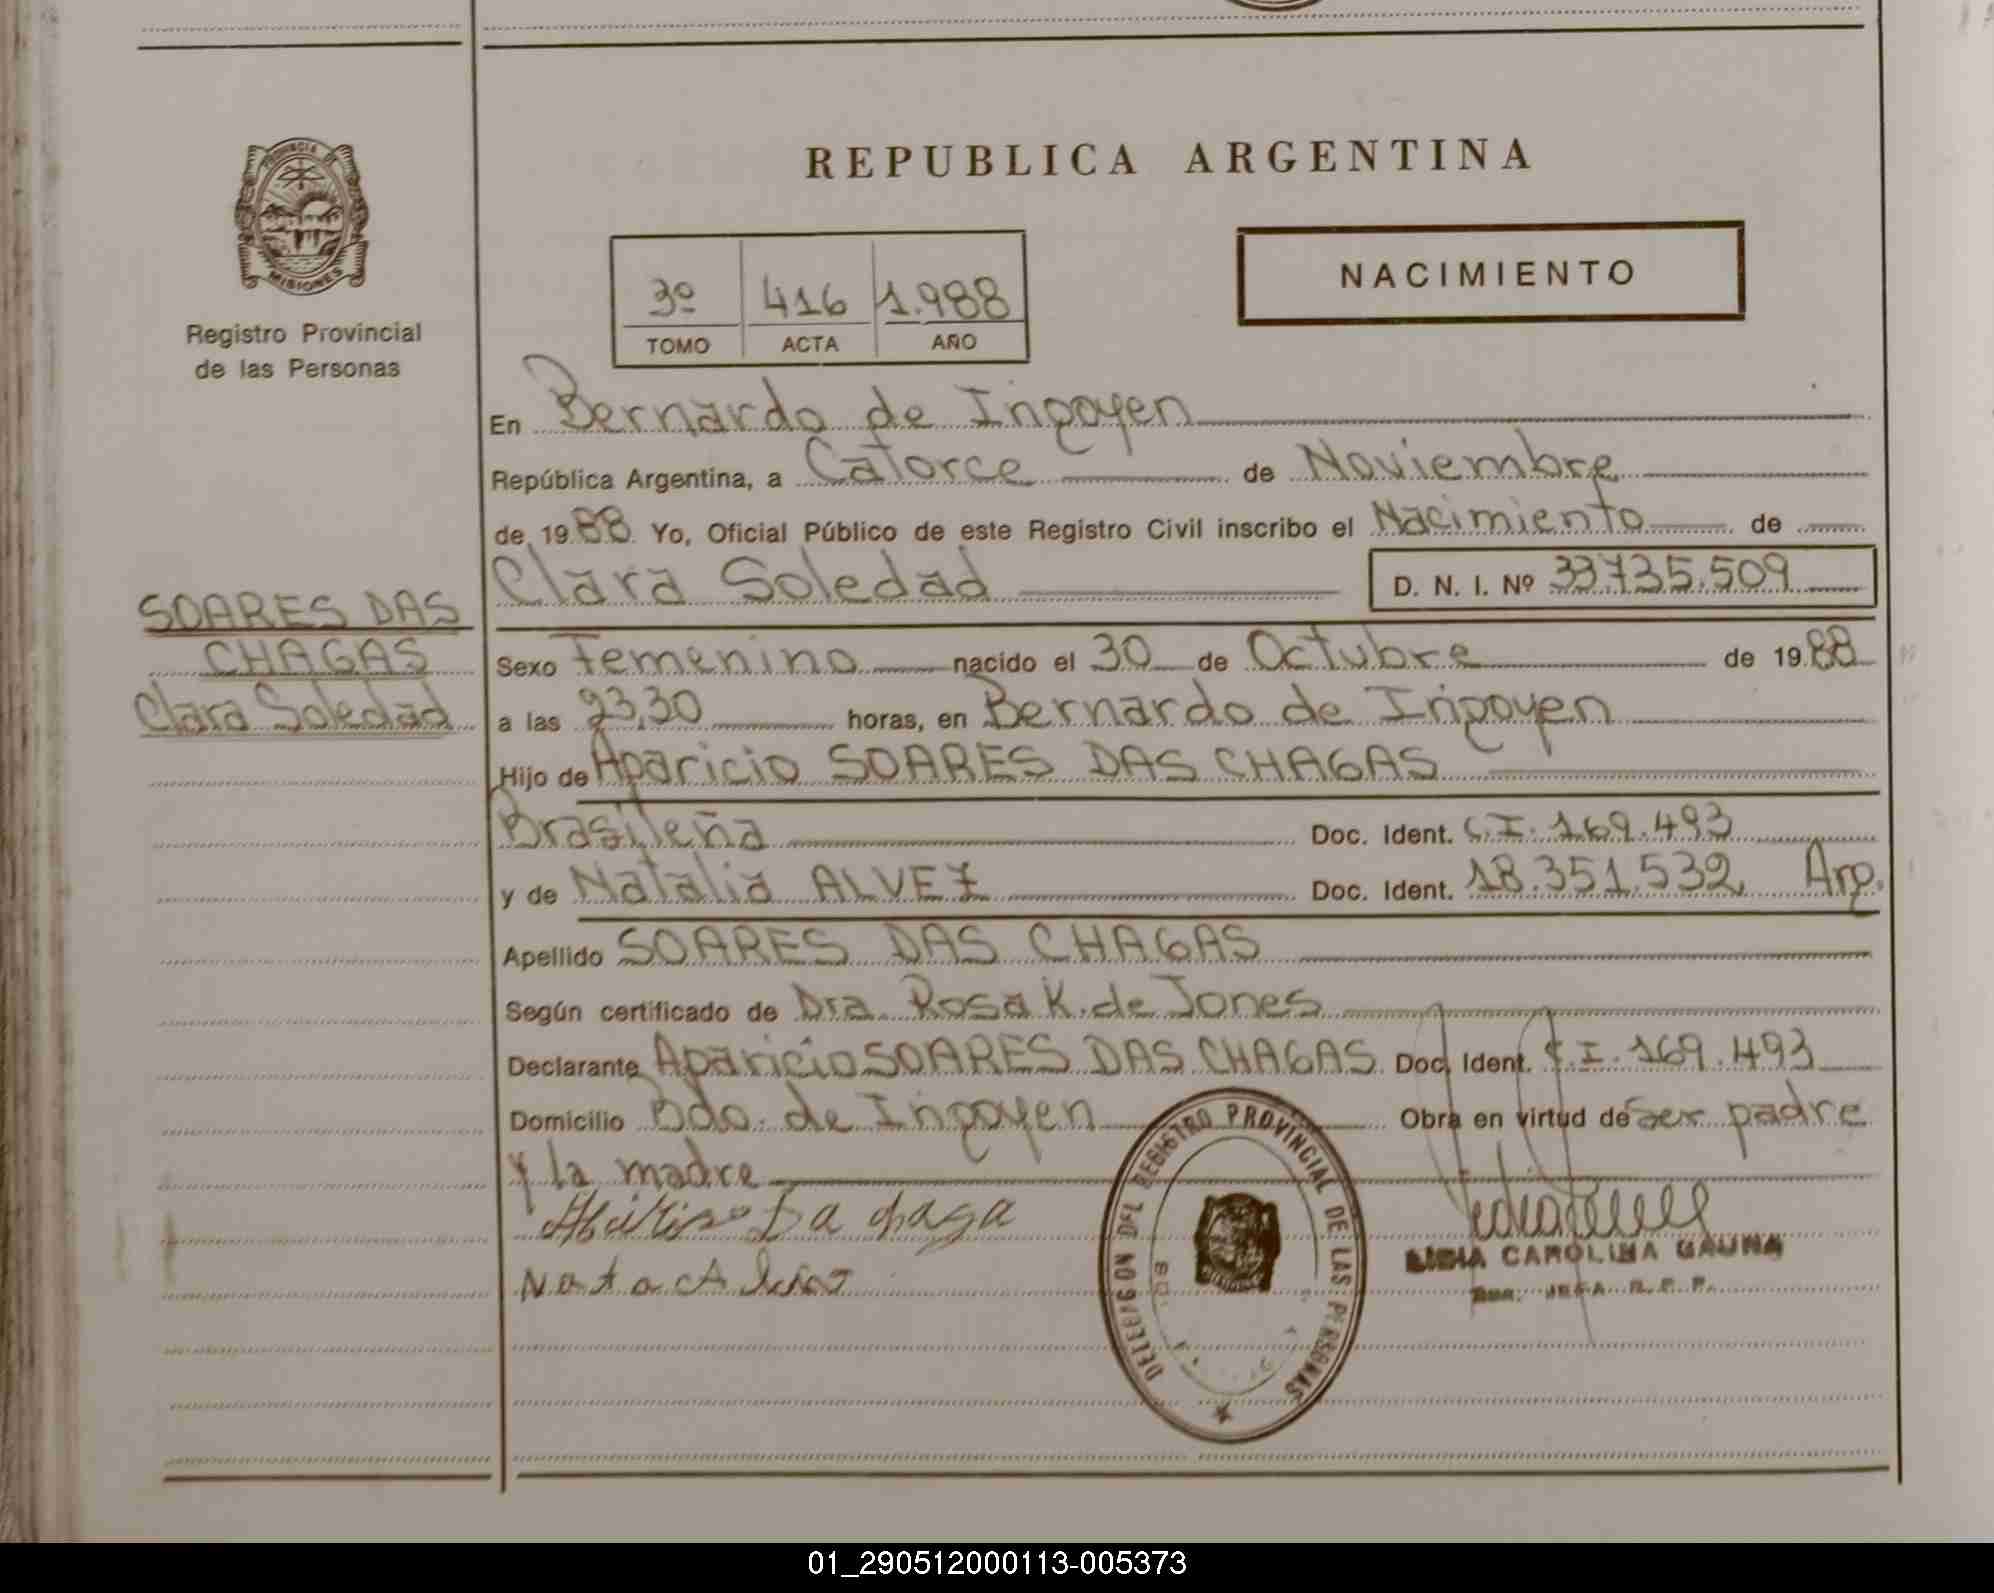 PROVINCIA DE
MISIONES
Registro Provincial
de las Personas
SOARES DAS
CHAGAS
Clara Soledad
REPUBLICA ARGENTINA
3º 416 1.988
TOMO ACTA AÑO
NACIMIENTO
En Bernardo de Irigoyen
República Argentina, a Catorce de Noviembre
de 1988 Yo, Oficial Público de este Registro Civil inscribo el Nacimiento de
Clara Soledad D. N. I. Nº 33.735.509
Sexo Femenino nacido el 30 de Octubre de 1988
a las 23,30 horas, en Bernardo de Irigoyen
Hijo de Aparicio SOARES DAS CHAGAS
Brasileña Doc. Ident. C.I. 169.493
y de Natalia ALVEZ Doc. Ident. 18.351.532 Arg.
Apellido SOARES DAS CHAGAS
Según certificado de Dra. Rosa K. de Jones
Declarante Aparicio SOARES DAS CHAGAS Doc. Ident. C.I. 169.493
Domicilio Bdo. de Irigoyen Obra en virtud de ser padre
y la madre
Da chaga
DELEGACION DEL REGISTRO PROVINCIAL DE LAS PERSONAS
LIDIA CAROLINA GAUNA
JEFA R. P. P.
01_290512000113-005373